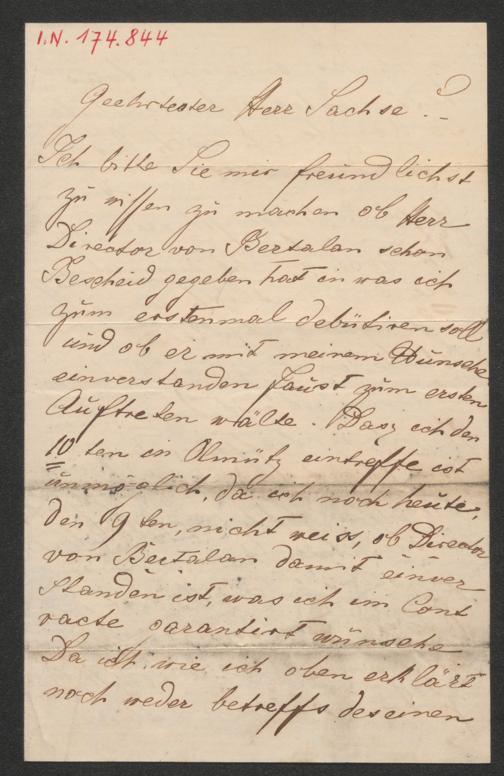 I.N. 174.844
Geehrtester Herr Sachse!
Ich bitte Sie mir freundlichst
zu wissen zu machen ob Herr
Director von Bertalan schon
Bescheid gegeben hat in was ich
zum erstenmal debütiren soll
und ob er mit meinem Wunsche
einverstanden Faust zum ersten
Auftreten wälte. Dasz ich den
10 ten in Olmütz eintreffe ist
unmöglich, da ich noch heute,
den 9 ten, nicht weiss, ob Director
von Bertalan damit einver
standen ist, was ich im Cont
racte garantirt wünsche
Da ich wie ich oben erklärt
noch weder betreffs des einen